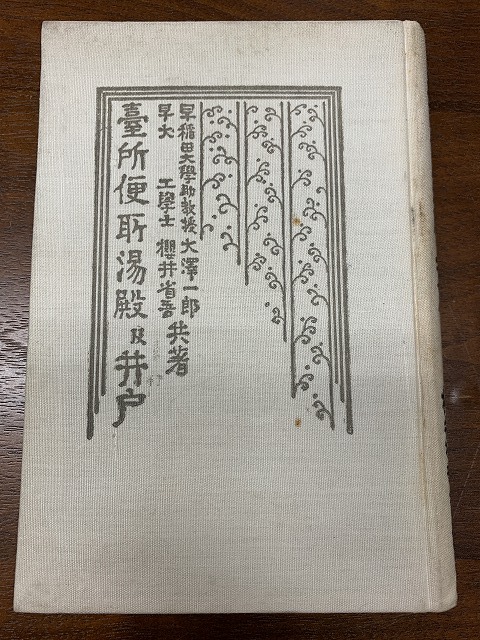 早稲田大學助教授 大澤一郎
早大 工學士 櫻井省吾
共著
臺所便所湯殿及井戸